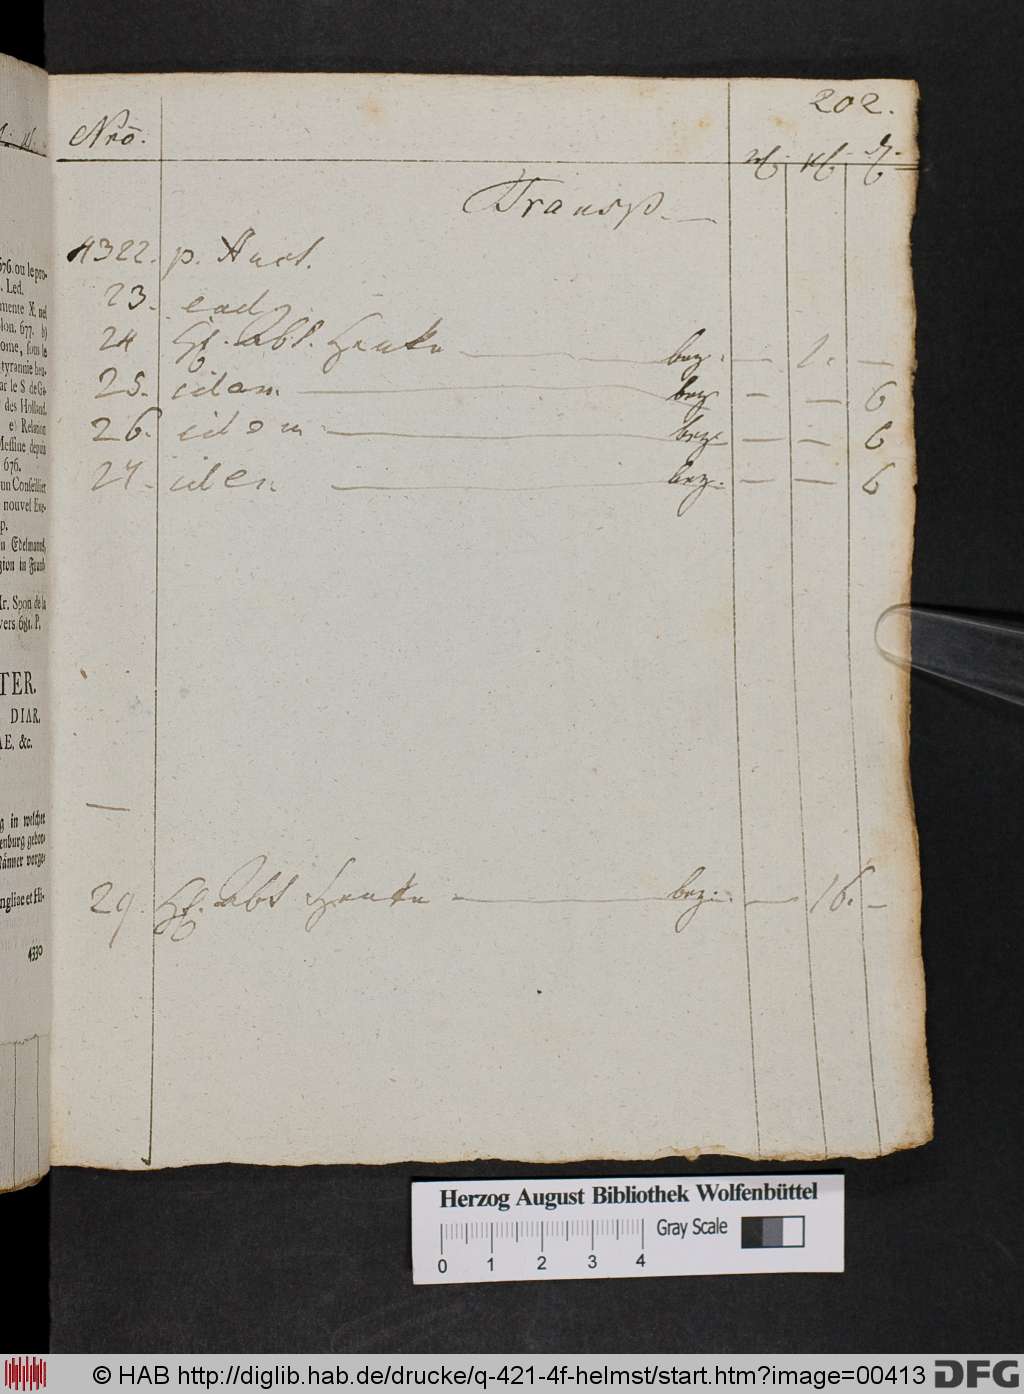 202.
Nrō.
Transp.
4322. p. Auct.
23. ead
24 H. Abt. Henke bez. — 1. —
25. idem. bez — — 6
26. idem bez — — 6
27. idem bez. — — 6
29. H. Abt Henke bez. — 16. —
676. ou le pro-
. Led.
mente X. nel
lon. 677. b)
ome, sous le
tyrannie heu-
ar le S de Gi-
des Holland.
e) Relation
Messine depuis
676.
un Conseillier
nouvel Eve-
p.
Edelmanns,
gion in Franck
Mr. Spon de la
vers 681. P.
TER.
DIAR.
AE, &c.
g in welcher
enburg gebor-
Männer vorge-
ngliae et Hi-
4330
Herzog August Bibliothek Wolfenbüttel
Gray Scale
0 1 2 3 4
© HAB http://diglib.hab.de/drucke/q-421-4f-helmst/start.htm?image=00413
DFG